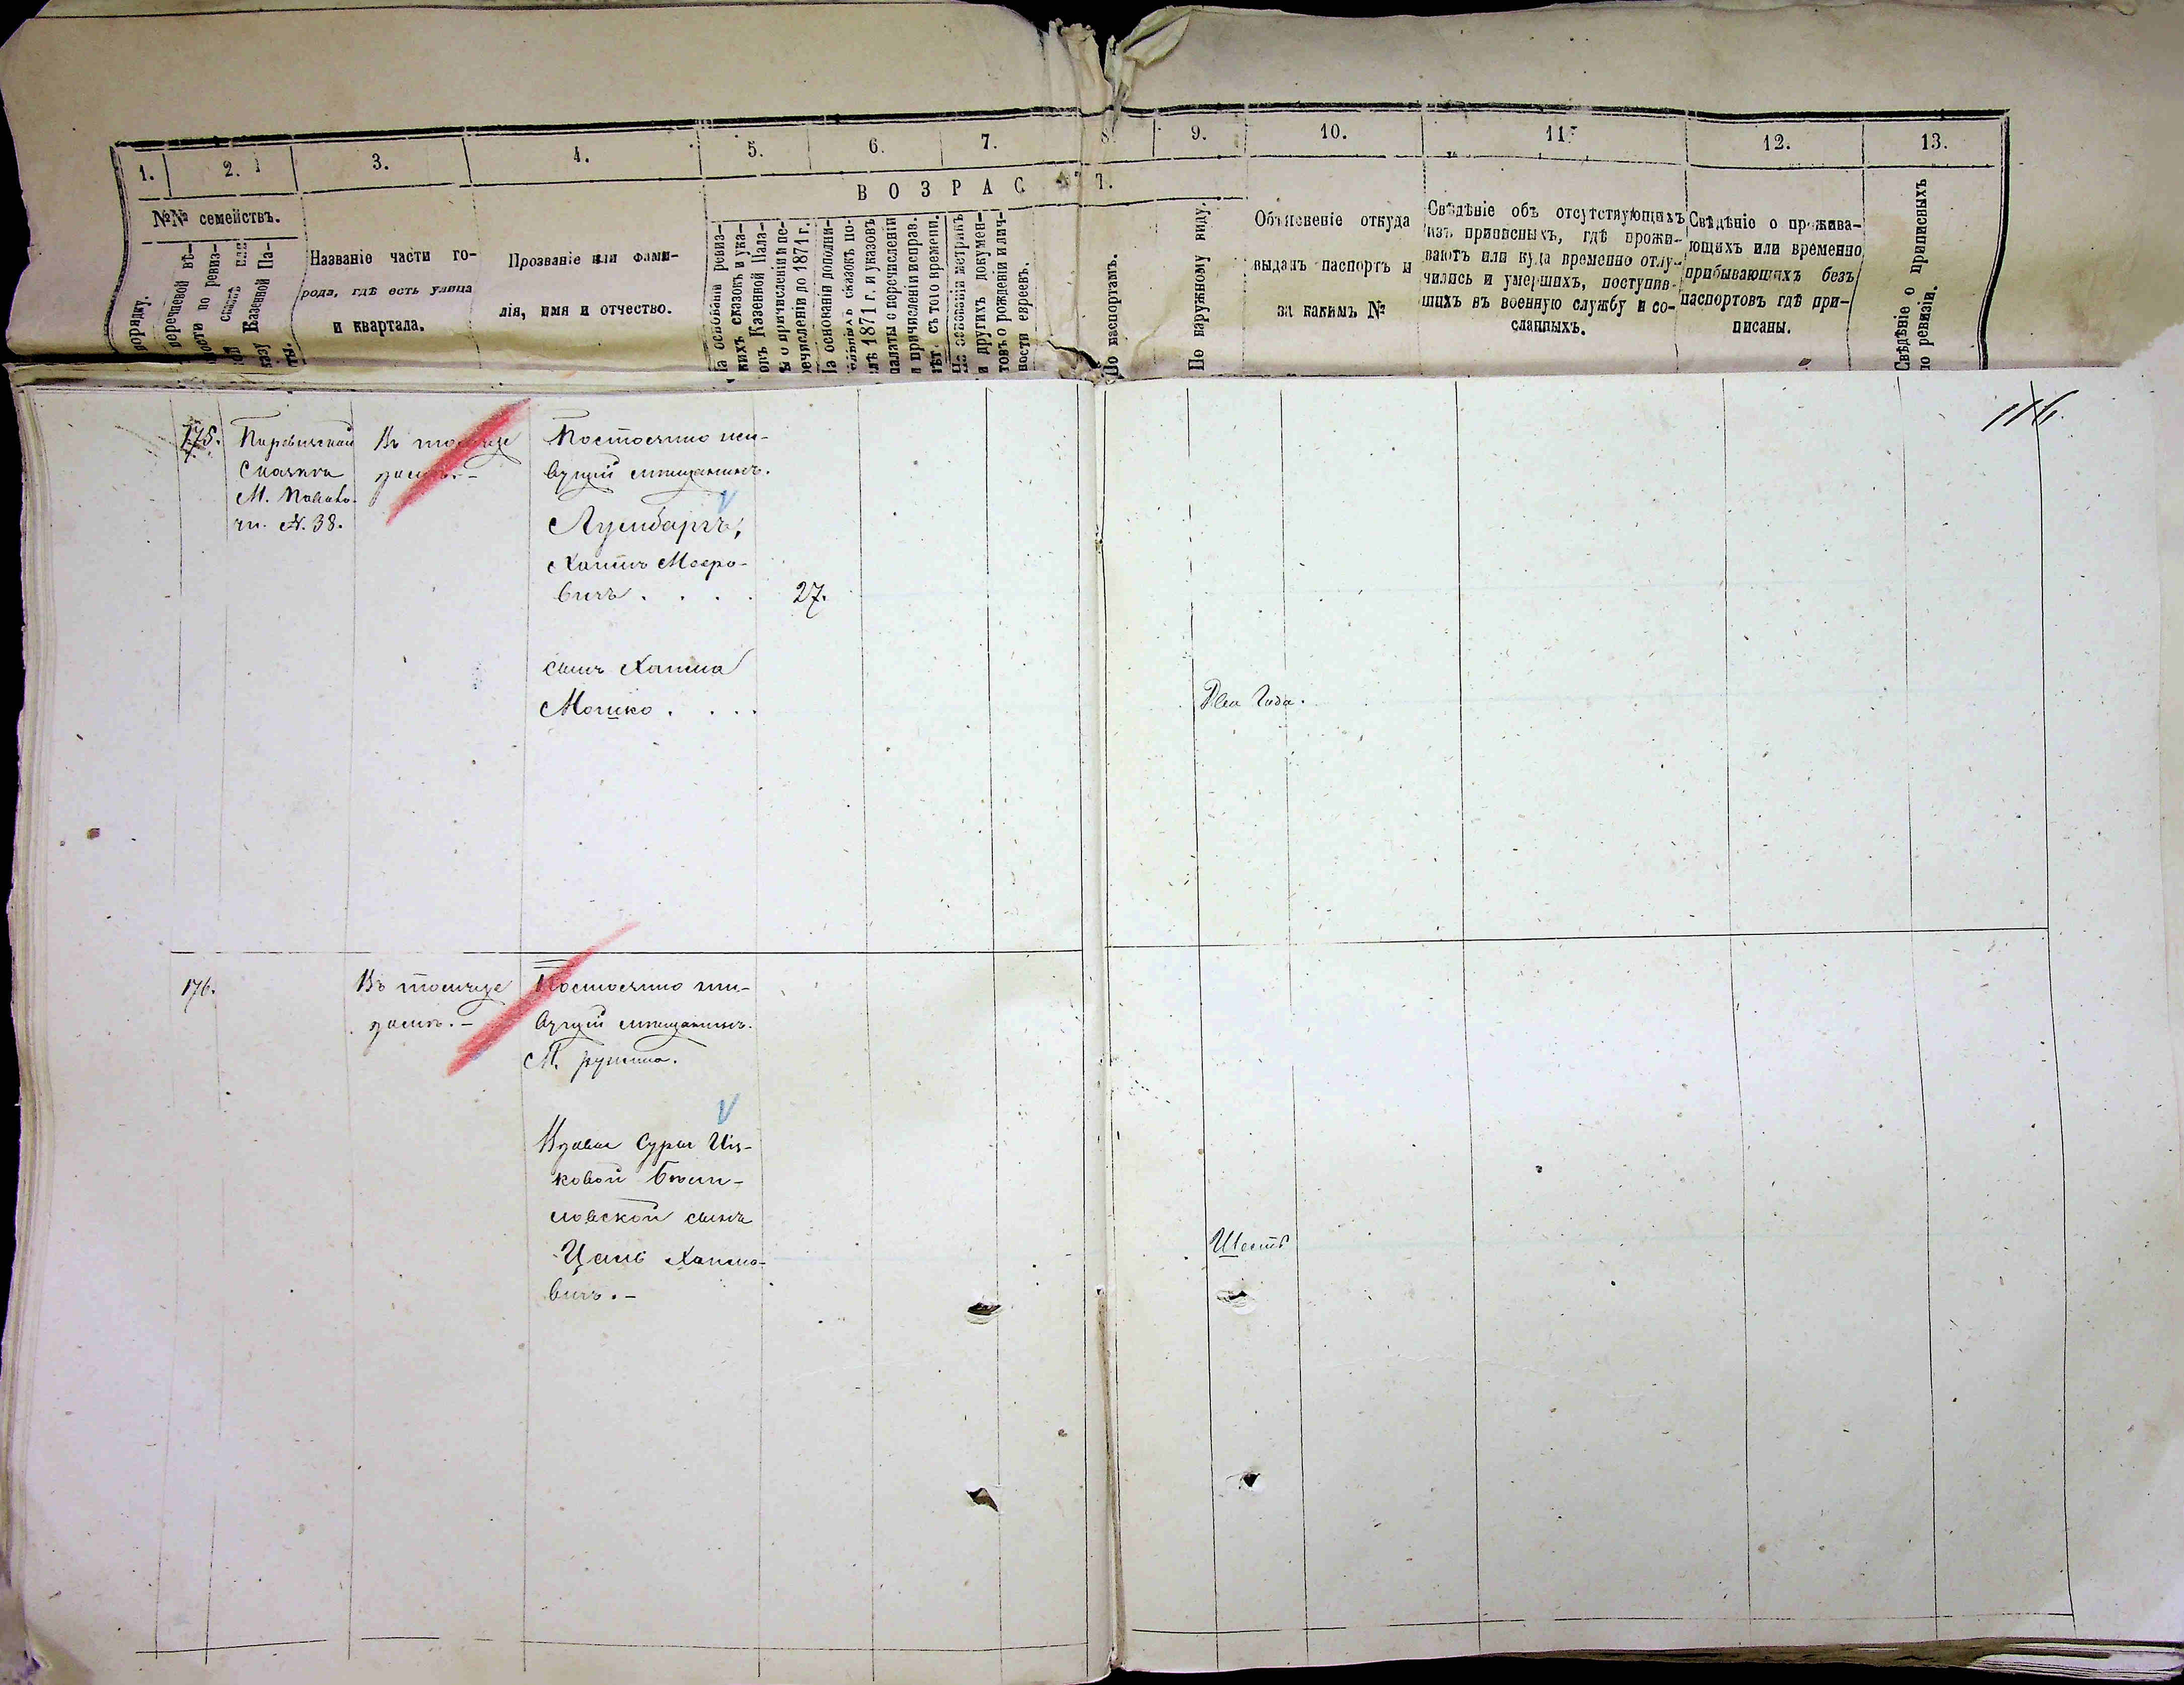 1.
2.
3.
4.
5.
6.
7.
8.
9.
10.
11.
12.
13.
ВОЗРАСТЪ.
№№ семействъ.
порядку.
перечневой вѣ-
ности по ревиз-
ской сказкѣ или
указу Казенной Па-
латы.
Названіе части го-
рода, гдѣ есть улица
и квартала.
Прозваніе или фами-
лія, имя и отчество.
На основаніи ревиз-
скихъ сказокъ и ука-
зовъ Казенной Пала-
ты о причисленіи и пе-
речисленіи до 1871 г.
На основаніи дополни-
тельныхъ сказокъ по-
слѣ 1871 г. и указовъ
палаты о перечисленіи
и причисленіи исправ.
лѣт. съ того времени.
На основаніи метрикъ
и другихъ докумен-
товъ о рожденіи и лич-
ности евреевъ.
По паспортамъ.
По наружному виду.
Объясненіе откуда
выданъ паспортъ и
за какимъ №
Свѣдѣніе объ отсутствующихъ
изъ приписныхъ, гдѣ прожи-
ваютъ или куда временно отлу-
чились и умершихъ, поступив-
шихъ въ военную службу и со-
сланныхъ.
Свѣдѣніе о прожива-
ющихъ или временно
прибывающихъ безъ
паспортовъ гдѣ при-
писаны.
Свѣдѣніе о приписныхъ
по ревизіи.
116.
175.
Сказка
М.
№. 38.
Въ томъже
домѣ. –
Постоянно жи-
вущій мѣщанинъ.
Лумбаргъ,
Хаимъ Мееро-
вичъ . . . .
27.
сынъ Хаима
Мошко . . . .
Два Года.
176.
Въ томъже
домѣ. –
Постоянно жи-
вущій мѣщанинъ.
М.
Вдовы Суры Иц-
ковой
ловской сынъ
Хаимо-
вичъ. –
Шесть